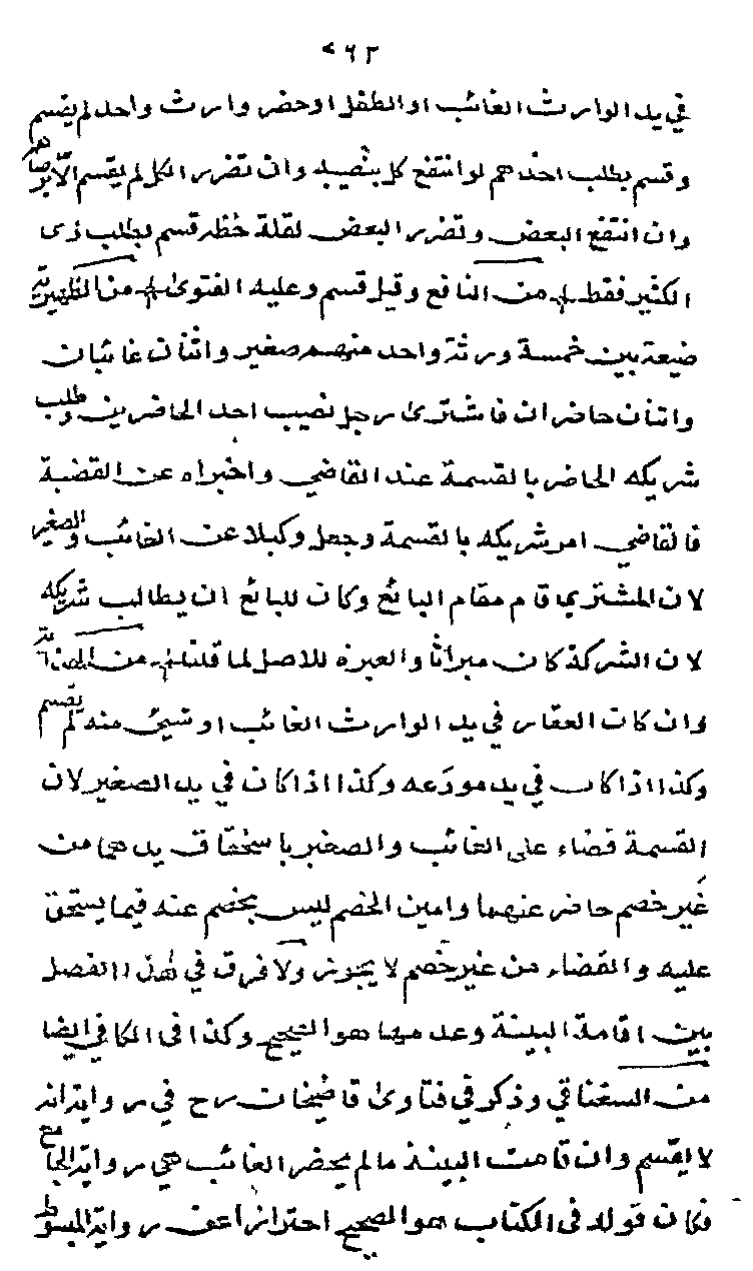 ٧٦٣
في يد الوارث الغائب او الطفل او حضر وارث واحد لم يقسم
وقسم بطلب احدهم لو انتفع كل بنصيبه وان تضرر الكل لم يقسم الا برضاهم
وان انتفع البعض وتضرر البعض لقلة حظه قسم بطلب ذى
الكثير فقط من النافع وقيل قسم وعليه الفتوى من الظهيرية
ضيعة بين خمسة ورثة واحد منهم صغير واثنان غائبان
واثنان حاضران فاشترى رجل نصيب احد الحاضرين وطلب
شريكه الحاضر بالقسمة عند القاضي واخبراه عن القضية
فالقاضي امر شريكه بالقسمة وجعل وكيلا عن الغائب والصغير
لان المشترى قام مقام البائع وكان للبائع ان يطالب شريكه
لان الشركة كان ميراثا والعبرة للاصل لما قلنا من
وان كان العقار في يد الوارث الغائب او شيئ منه لم يقسم
وكذا اذا كان في يد مودعه وكذا اذا كان في يد الصغير لان
القسمة قضاء على الغائب والصغير باستحقاق يدهما من
غير خصم حاضر عنهما وامين الخصم ليس بخصم عنه فيما يستحق
عليه والقضاء من غير خصم لا يجوز ولا فرق في هذا الفصل
بين اقامة البينة وعدمها هو الصحيح وكذا فى الكافي ايضا
من السغناقي وذكر في فتاوى قاضيخان رح في رواية انه
لا يقسم وان قامت البينة مالم يحضر الغائب هي رواية الجامع
فكان قوله فى الكتاب هو الصحيح احترازا عن رواية المبسوط